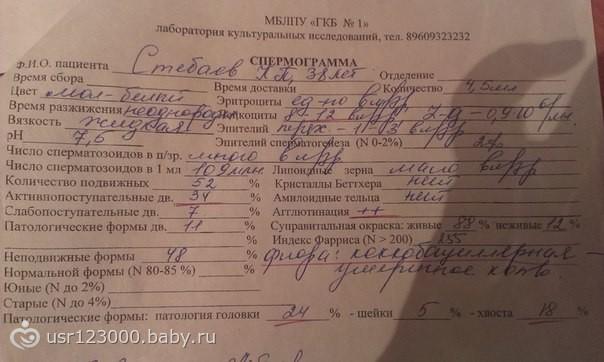 МБЛПУ «ГКБ № 1»
лаборатория культуральных исследований, тел. 89609323232
СПЕРМОГРАММА
Ф.И.О. пациента Стебаев 38 лет Отделение
Время сбора Время доставки Количество 4,5мл
Цвет мол-белый Эритроциты ед-но в п/зр
Время разжижения неоднородн Лейкоциты 8-12 в п/зр
Вязкость жидкая Эпителий 11-13 в п/зр
pH 7,6 Эпителий сперматогенеза (N 0-2%) 2%
Число сперматозоидов в п/зр. много в п/зр
Число сперматозоидов в 1 мл 109 млн. Липоидные зерна мало в п/зр
Количество подвижных 52 % Кристаллы Беттхера нет
Активнопоступательные дв. 34 % Амилоидные тельца нет
Слабопоступательные дв. 7 % Агглютинация ++
Патологические формы дв. 11 % Суправитальная окраска: живые 88 % неживые 12 %
Индекс Фарриса (N > 200) 255
Неподвижные формы 48 % Флора: коккобациллярная –
Нормальной формы (N 80-85 %) % умеренное кол-во.
Юные (N до 2%) %
Старые (N до 4%) %
Патологические формы: патология головки 24 % - шейки 5 % - хвоста 18 %
usr123000.baby.ru